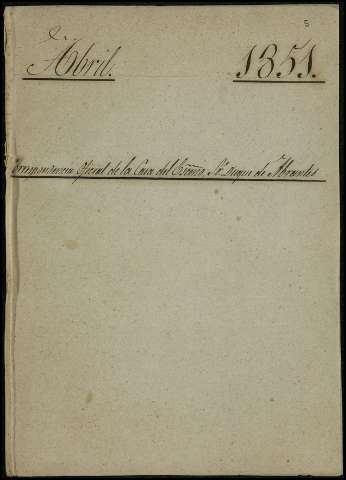 5
Abril. 1851.
Correspondencia Oficial de la Casa del Exmo. Sr. Duque de Abrantes